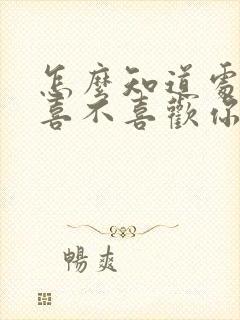 怎麼知道處
喜不喜歡你
暢爽